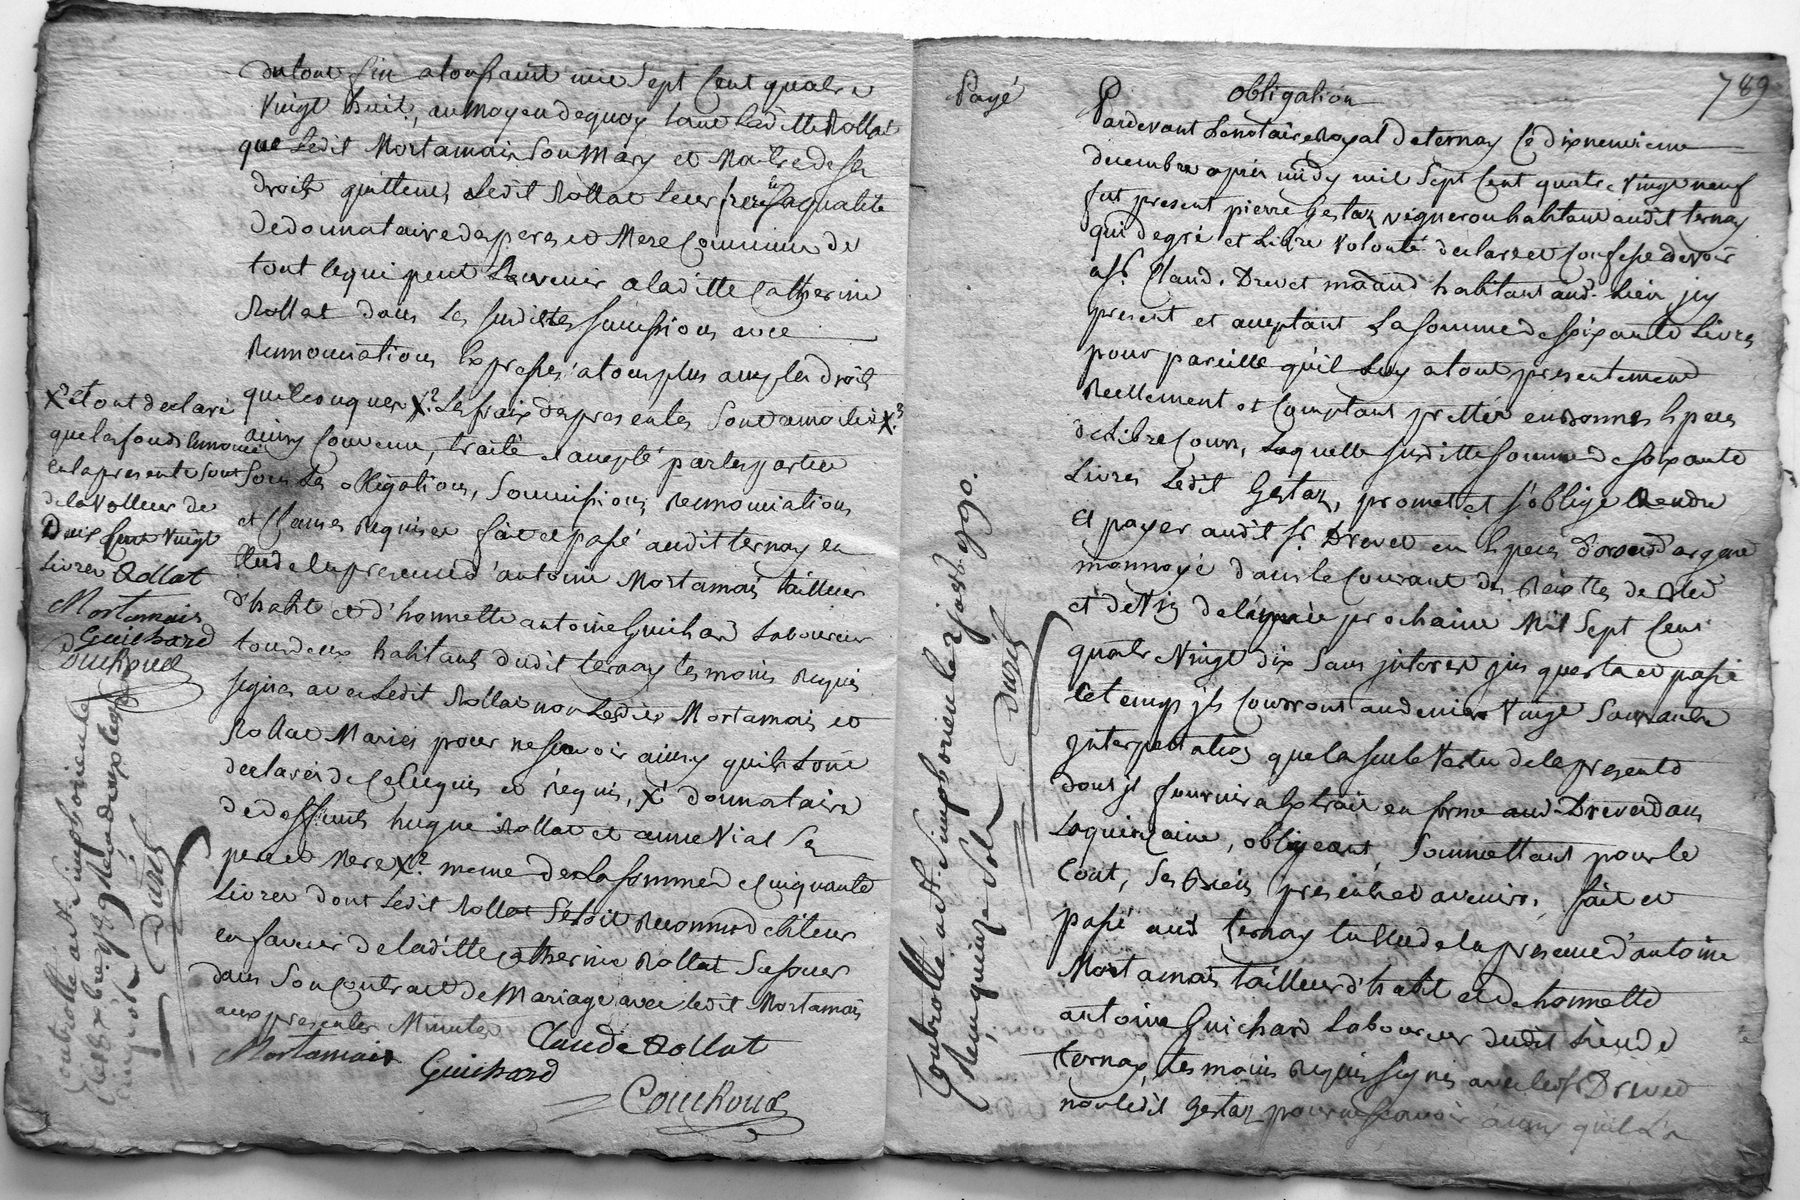 du tout fin a toussaint mil sept Cent quatre
vingt huit, au moyen de quoy tant laditte Rollat
que Ledit Mortamais son Mary et Maitre de ses
droits quittent Ledit Rollat Leur frere en sa qualité
de donnataire des pere et Mere Commune de
tout ce qui peut Luy revenir a laditte Catherine
Rollat dans Les susdittes successions avec
Renonciations Expresses a tous plus amples droits
quelconques X². Les frais des presentes X³.
ainsy Convenu, traité et accepté par les parties
sous Les obligations, soumissions, Renonciations
et Clauses requises fait et passé audit ternay en
l'etude en presence d'antoine Mortamais tailleur
d'habit et d'honnette antoine Guichard Laboureur
tous deux habitants dudit ternay temoins requis
signés avec Ledit Rollat non Lesdits Mortamais et
Rollat Mariés pour ne scavoir ainsy qu'ils L'ont
declaré de Ce Enquis et requis, X¹ donnataire
de deffunts hugue Rollat et anne Vial Ses
pere et Mere X² meme de La somme de Cinquante
Livres dont Ledit Rollat s'etoit Reconnu debiteur
en faveur de laditte Catherine Rollat sa soeur
dans son Contract de Mariage avec ledit Mortamais
aux presentes Minutes
Claude Rollat
Mortamais Guichard
Couchoud
X² et ont declaré
que les fonds
en la presente sont
de la Valleur de
Deux Cent Vingt
Livres Rollat
Mortamais
Guichard
Couchoud
Controllé a St. Simphorien le
Duret
Payé
obligation
789
Pardevant Le notaire Royal de ternay Ce dixneuvieme
decembre apres midy mil sept Cent quatre vingt neuf
fut present pierre Gestaz vigneron habitant audit ternay
qui de gré et Libre volonté declare et Confesse devoir
a Sr. Claude Drevet marchand habitant aud. Lieu jcy
present et acceptant La somme de soixante Livres
pour pareille qu'il Luy a tout presentement
Reellement et Comptant prettée en bonnes Especes
de Libre Cours, Laquelle susditte somme de soixante
Livres Ledit Gestaz, promet et s'oblige Rendre
et payer audit Sr. Drevet en Especes d'or ou d'argent
monnoyé dans le Courant des Recoltes de bled
et de Vin de l'année prochaine Mil Sept Cent
quatre Vingt dix sans jnterets jusques la et passé
Ce temps jls Courront au denier Vingt Sans autre
jnterpellation que la seule Vertu de la presente
dont jl fournira Extrait en forme aud. Drevet dans
La quinzaine, obligeant, Soumettant pour le
tout, ses Biens presents et avenirs, fait et
passé aud. ternay en l'Etude en la presence d'antoine
Mortamais tailleur d'habit et de honnette
antoine Guichard Laboureur dudit Lieu de
ternay, temoins Requis signés avec led. Sr. Drevet
non ledit Gestaz pour ne scavoir ainsy quil L'a
Controllé a St. Simphorien le 2 janv. 1790.
Reçu quinze Sols
Duret